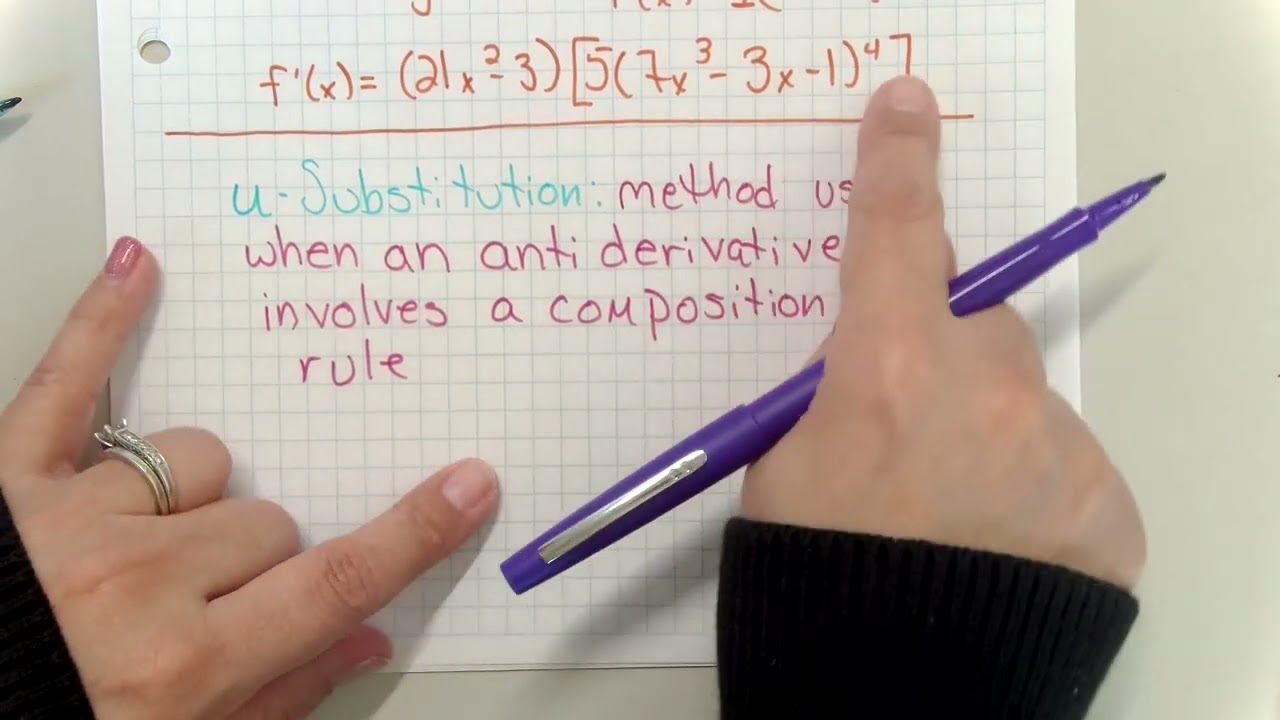 f'(x) = (21x²-3)[5(7x³-3x-1)⁴]
u-Substitution: method
when an anti derivative
involves a composition
rule